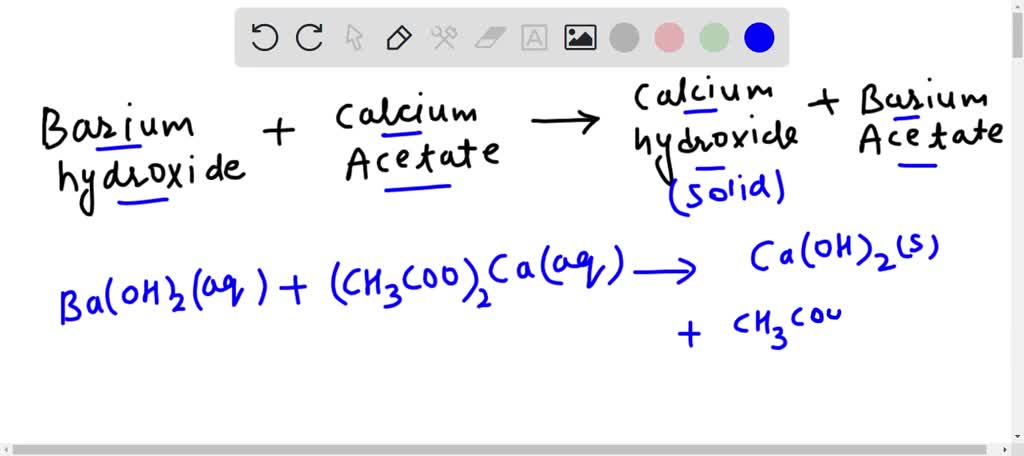 Barium hydroxide + Calcium Acetate → Calcium hydroxide (solid) + Barium Acetate
Ba(OH)₂(aq) + (CH₃COO)₂Ca(aq) → Ca(OH)₂(s)
+ CH₃COO